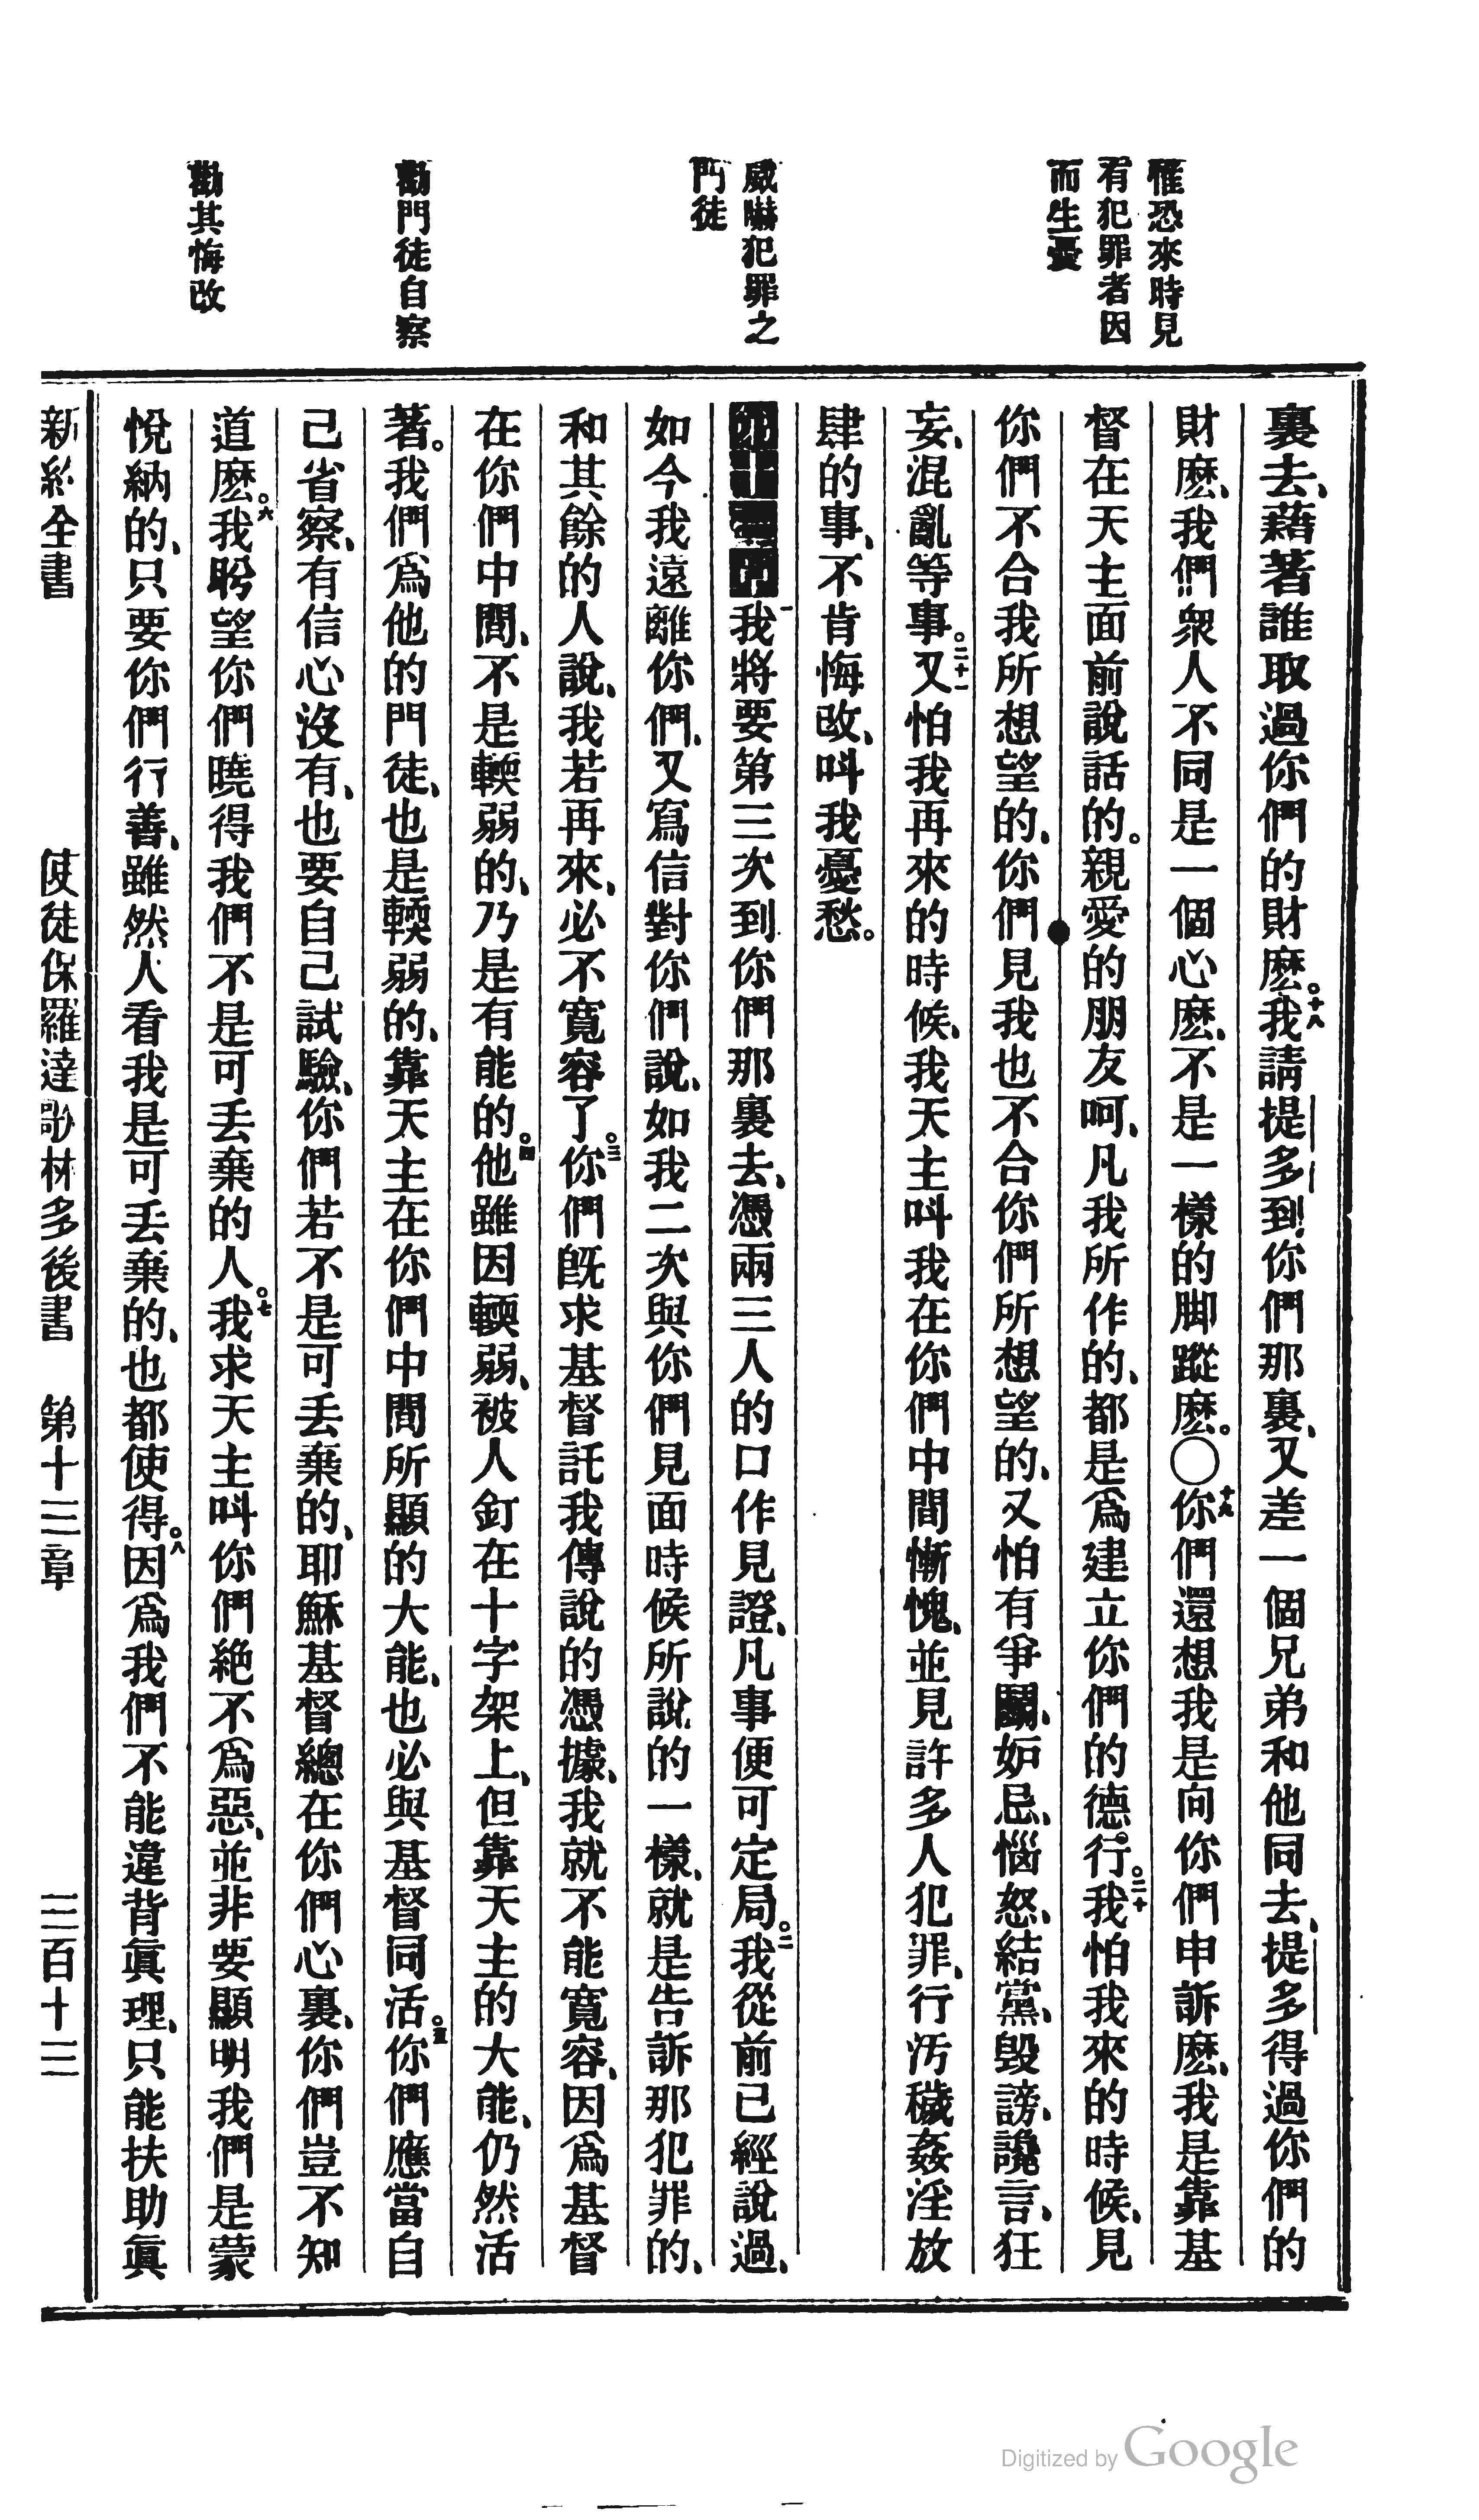 惟恐來時見
有犯罪者因
而生憂
威嚇犯罪之
門徒
勸門徒自察
勸其悔改
裏去、藉著誰取過你們的財麽。十八我請提多到你們那裏、又差一個兄弟和他同去、提多得過你們的
財麽、我們衆人不同是一個心麽、不是一樣的脚蹤麽。〇十九你們還想我是向你們申訴麽、我是靠基
督在天主面前說話的。親愛的朋友呵、凡我所作的、都是爲建立你們的德行。二十我怕我來的時候、見
你們不合我所想望的、你們見我也不合你們所想望的、又怕有爭鬭、妒忌、惱怒、結黨、毀謗、讒言、狂
妄、混亂等事。二十一又怕我再來的時候、我天主呌我在你們中間慚愧、並見許多人犯罪、行汚穢姦淫放
肆的事、不肯悔改、呌我憂愁。
一我將要第三次到你們那裏去、憑兩三人的口作見證、凡事便可定局。二我從前已經說過、
如今我遠離你們、又寫信對你們說、如我二次與你們見面時候所說的一樣、就是告訴那犯罪的、
和其餘的人說、我若再來、必不寬容了。三你們旣求基督託我傳說的憑據、我就不能寬容、因爲基督
在你們中間、不是輭弱的、乃是有能的。四他雖因輭弱、被人釘在十字架上、但靠天主的大能、仍然活
著。我們爲他的門徒、也是輭弱的、靠天主在你們中間所顯的大能、也必與基督同活。五你們應當自
己省察、有信心沒有、也要自己試驗、你們若不是可丢棄的、耶穌基督總在你們心裏、你們豈不知
道麽。六我盼望你們曉得我們不是可丢棄的人。七我求天主呌你們絶不爲惡、並非要顯明我們是蒙
悅納的、只要你們行善、雖然人看我是可丢棄的、也都使得。八因爲我們不能違背眞理、只能扶助眞
新約全書 使徒保羅達哥林多後書 第十三章 三百十三
Digitized by Google